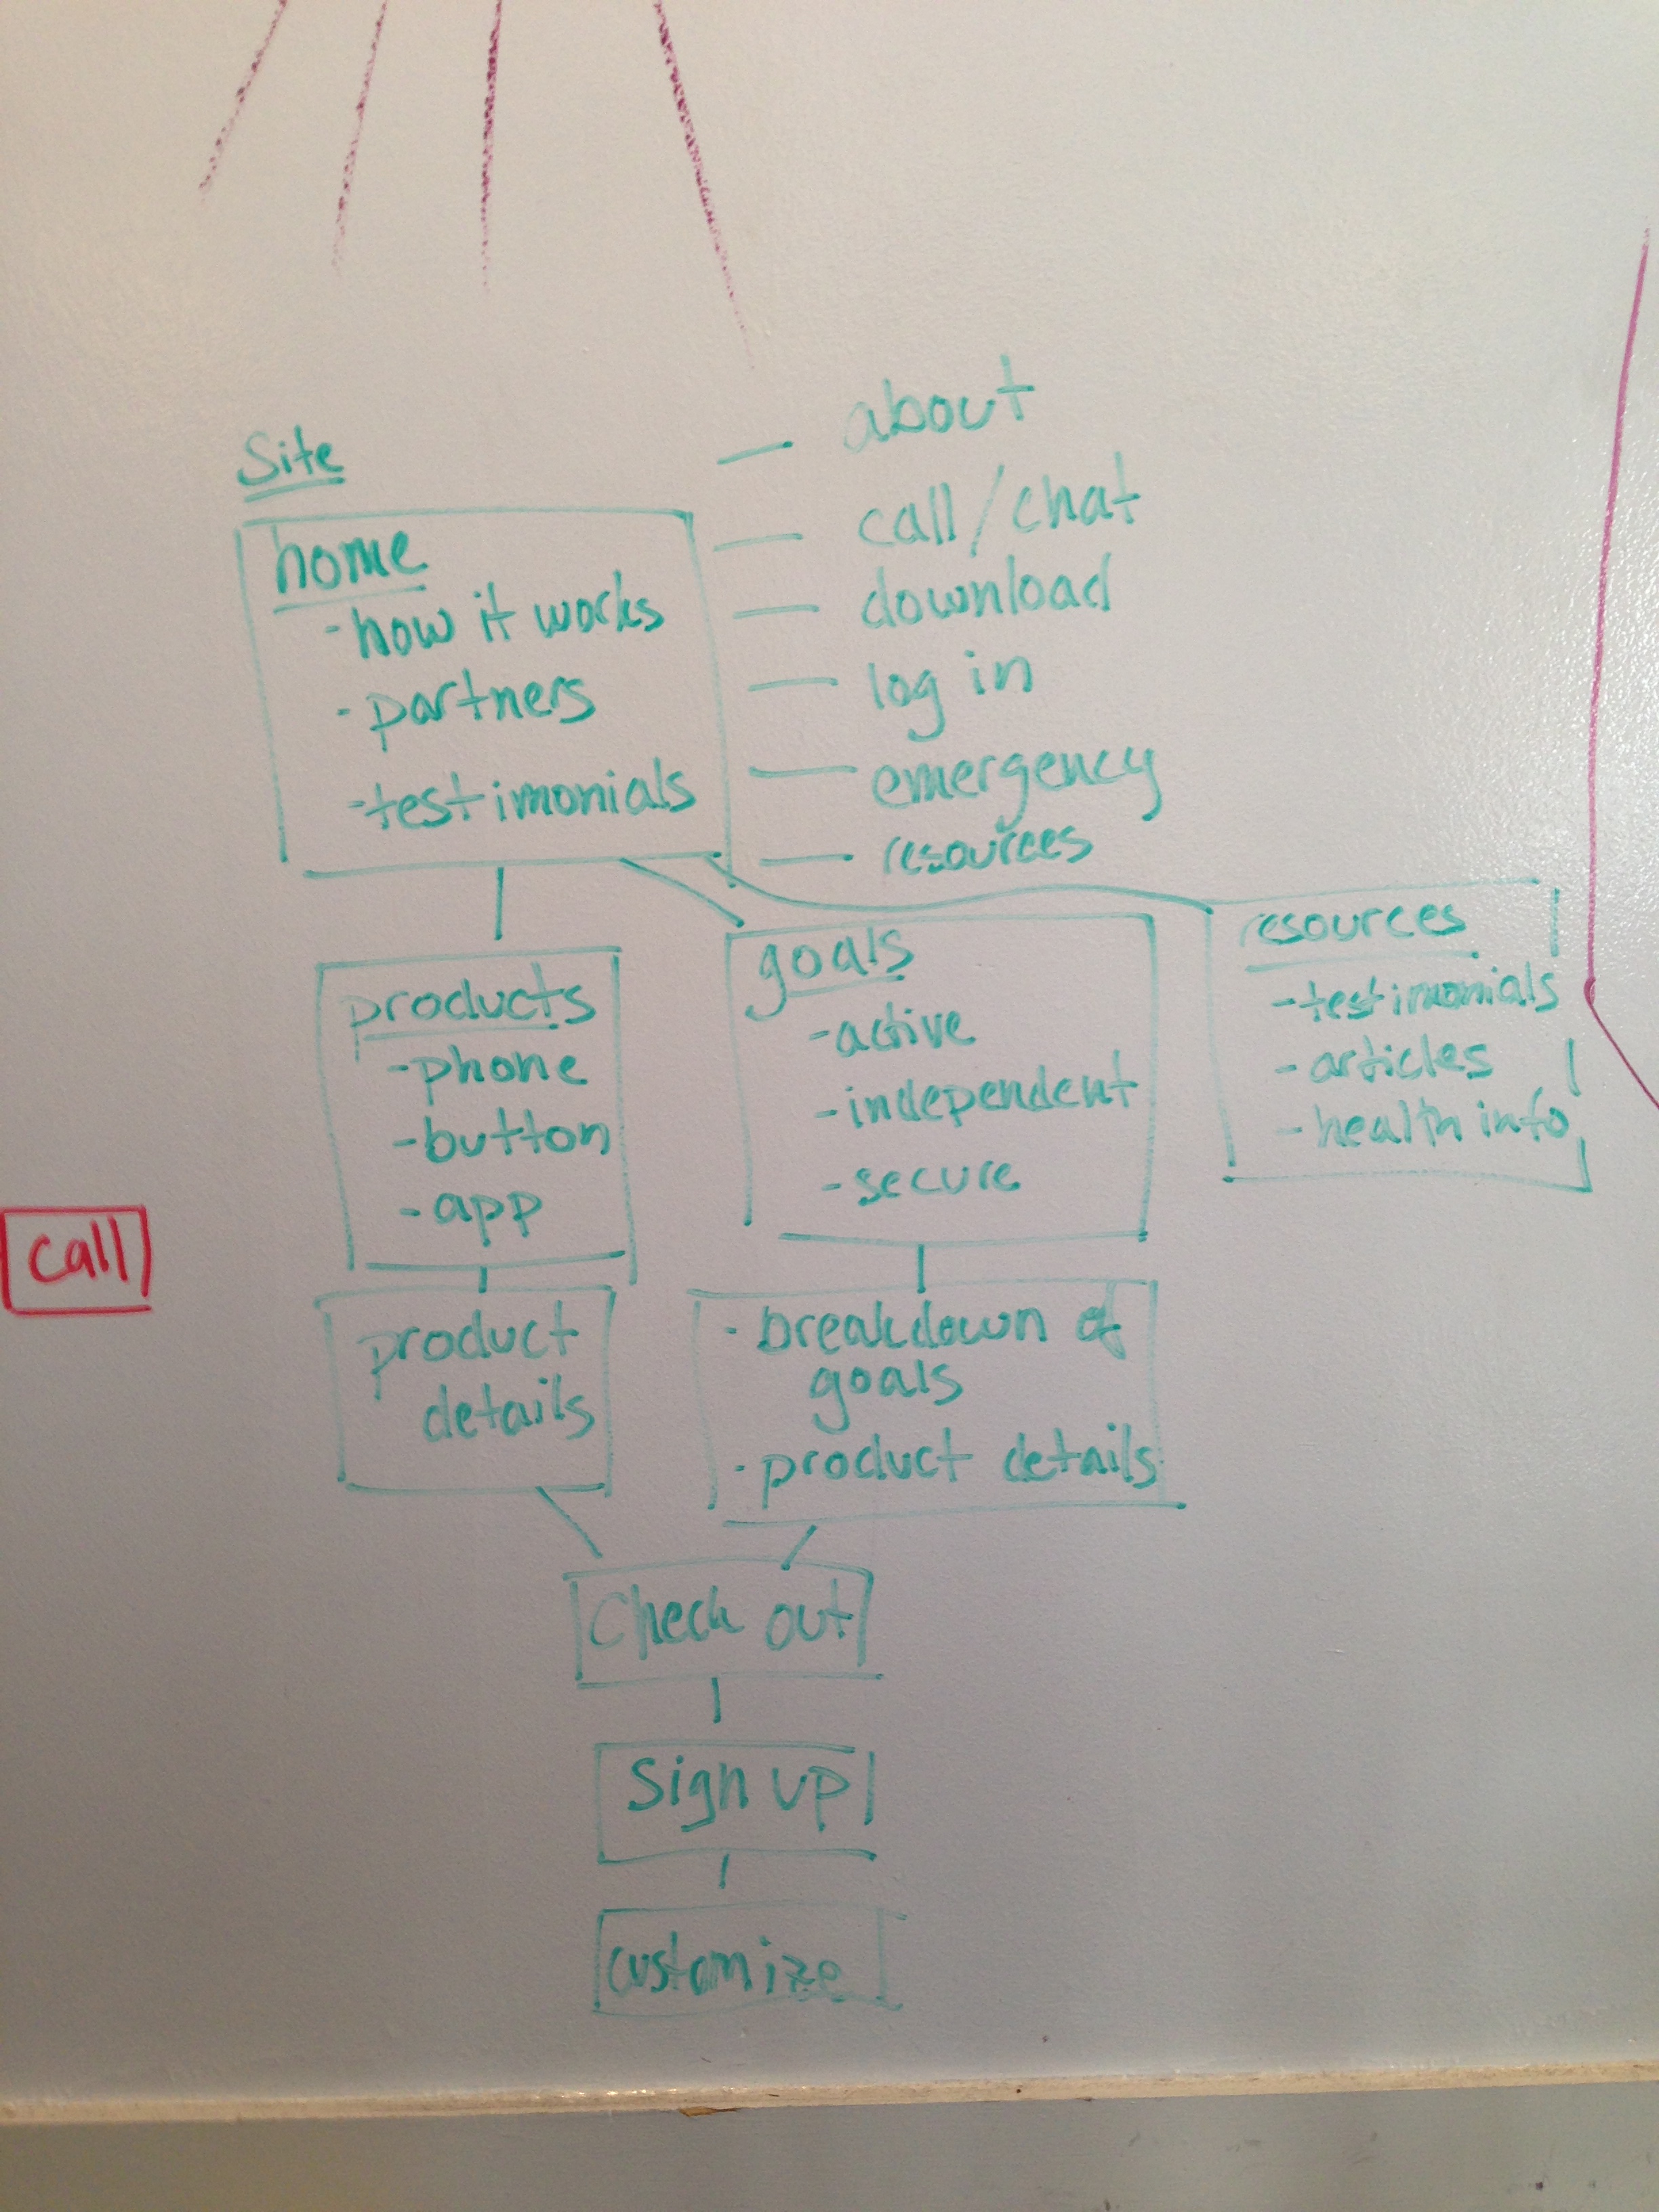 Site
home
- how it works
- partners
- testimonials
— about
— call/chat
— download
— log in
— emergency
— resources
products
- phone
- button
- app
goals
- active
- independent
- secure
resources
- testimonials
- articles
- health info
call
product
details
- breakdown of
goals
- product details
Check out
Sign up
customize